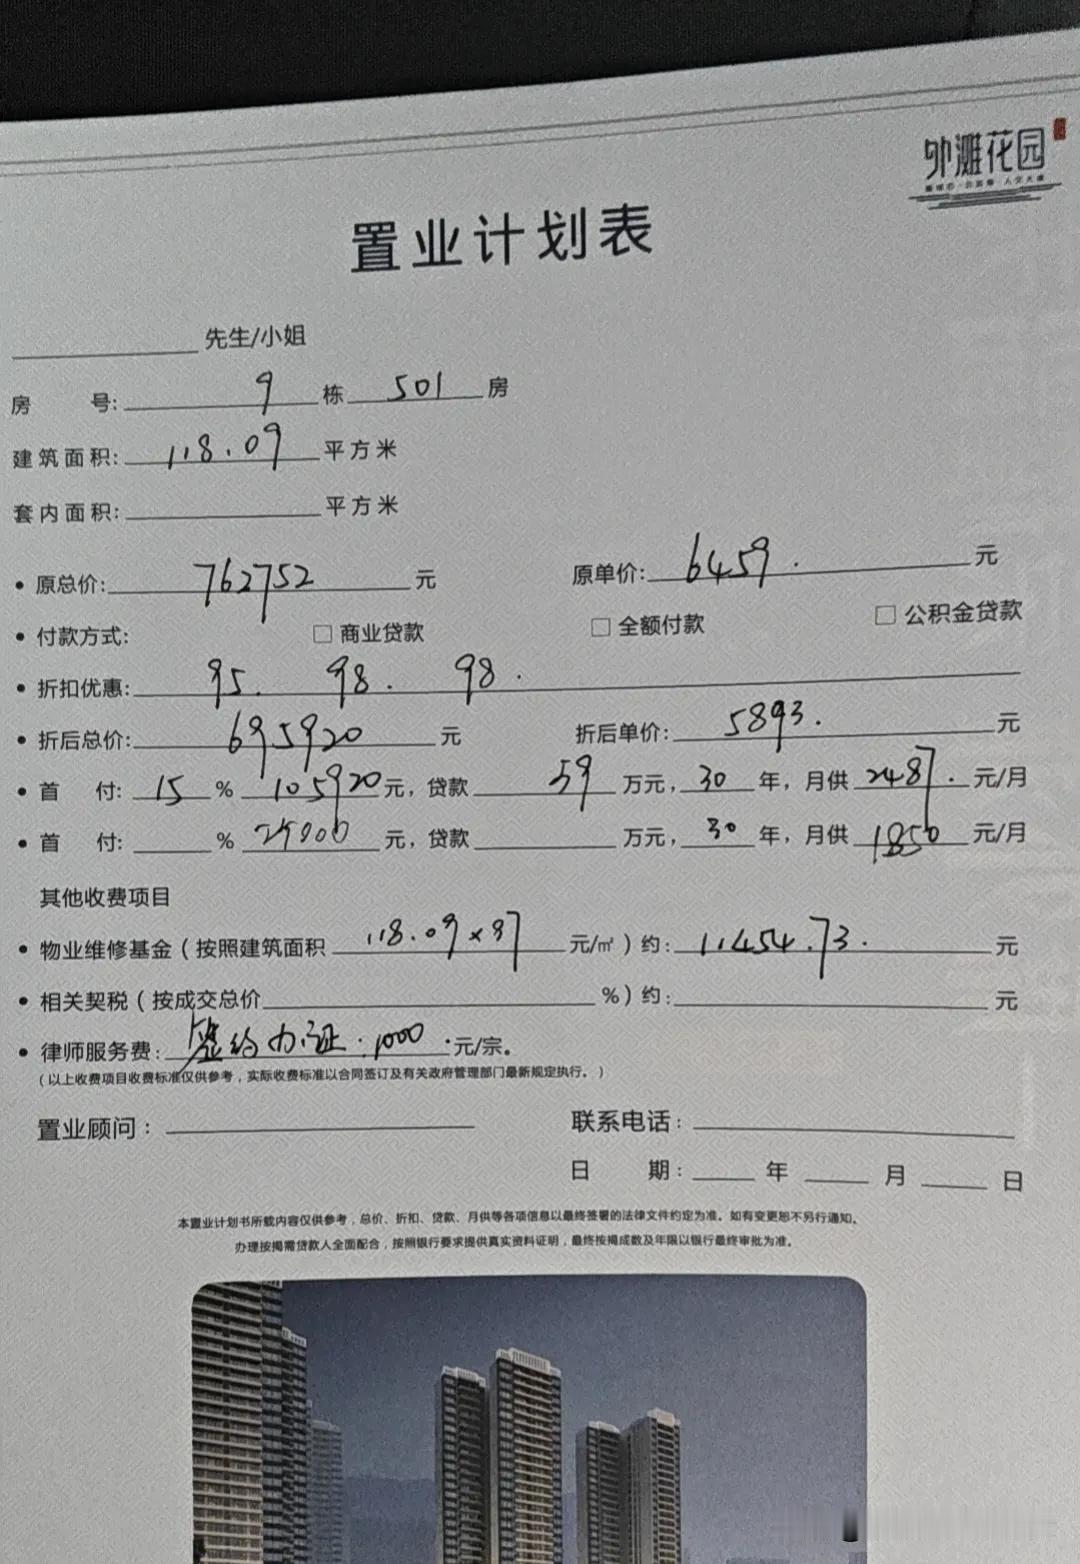 外滩花园
置业计划表
先生/小姐
房 号: 9 栋 501 房
建筑面积: 118.09 平方米
套内面积: 平方米
• 原总价: 762752 元 原单价: 6459. 元
• 付款方式: □ 商业贷款 □ 全额付款 □ 公积金贷款
• 折扣优惠: 95. 98. 98.
• 折后总价: 695920 元 折后单价: 5893. 元
• 首 付: 15 % 105920 元, 贷款 59 万元, 30 年, 月供 2487. 元/月
• 首 付: % 元, 贷款 万元, 30 年, 月供 1850 元/月
其他收费项目
• 物业维修基金（按照建筑面积 118.09×97 元/㎡）约: 11454.73. 元
• 相关契税（按成交总价 %）约: 元
• 律师服务费: 签约办证: 1000 元/宗。
（以上收费项目收费标准仅供参考，实际收费标准以合同签订及有关政府管理部门最新规定执行。）
置业顾问: 联系电话:
日 期: 年 月 日
本置业计划书所载内容仅供参考，总价、折扣、贷款、月供等各项信息以最终签署的法律文件约定为准。如有变更恕不另行通知。
办理按揭需贷款人全面配合，按照银行要求提供真实资料证明，最终按揭成数及年限以银行最终审批为准。